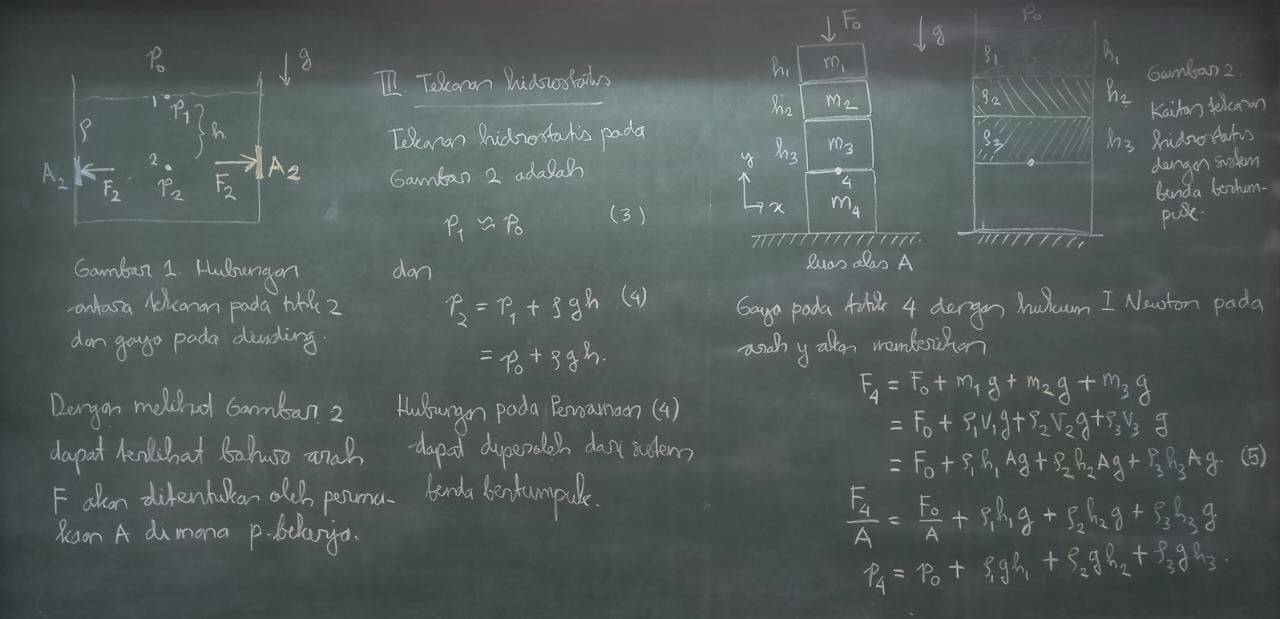 P₀
g
1 P₁
ρ
h
2
A₂
F₂
P₂
F₂
A₂
Gambar 1. Hubungan
antara tekanan pada titik 2
dan gaya pada dinding.
Dengan melihat Gambar 2
dapat terlihat bahwa arah
F akan ditentukan oleh permu-
kaan A di mana p bekerja.
III. Tekanan hidrostatis
Tekanan hidrostatis pada
Gambar 2 adalah
P₁ ≈ P₀ (3)
dan
P₂ = P₁ + ρgh (4)
= P₀ + ρgh.
Hubungan pada Persamaan (4)
dapat diperoleh dari sistem
benda bertumpuk.
F₀
g
h₁ m₁
h₂ m₂
h₃ m₃
4
m₄
y
x
luas alas A
P₀
ρ₁ h₁
ρ₂ h₂
ρ₃ h₃
Gambar 2.
Kaitan tekanan
hidrostatis
dengan sistem
benda bertum-
puk.
Gaya pada titik 4 dengan hukum I Newton pada
arah y akan memberikan
F₄ = F₀ + m₁g + m₂g + m₃g
= F₀ + ρ₁V₁g + ρ₂V₂g + ρ₃V₃ g
= F₀ + ρ₁h₁Ag + ρ₂h₂Ag + ρ₃h₃Ag. (5)
F₄/A = F₀/A + ρ₁h₁g + ρ₂h₂g + ρ₃h₃g.
P₄ = P₀ + ρ₁gh₁ + ρ₂gh₂ + ρ₃gh₃.